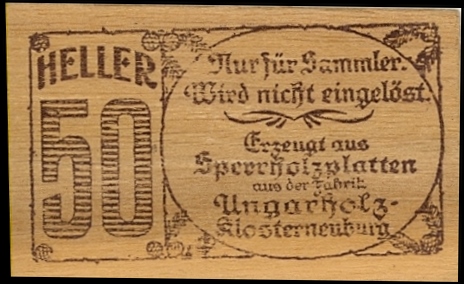 HELLER
50
Nur für Sammler.
Wird nicht eingelöst.
Erzeugt aus
Sperrholzplatten
aus der Fabrik
Ungarholz-
Klosterneuburg